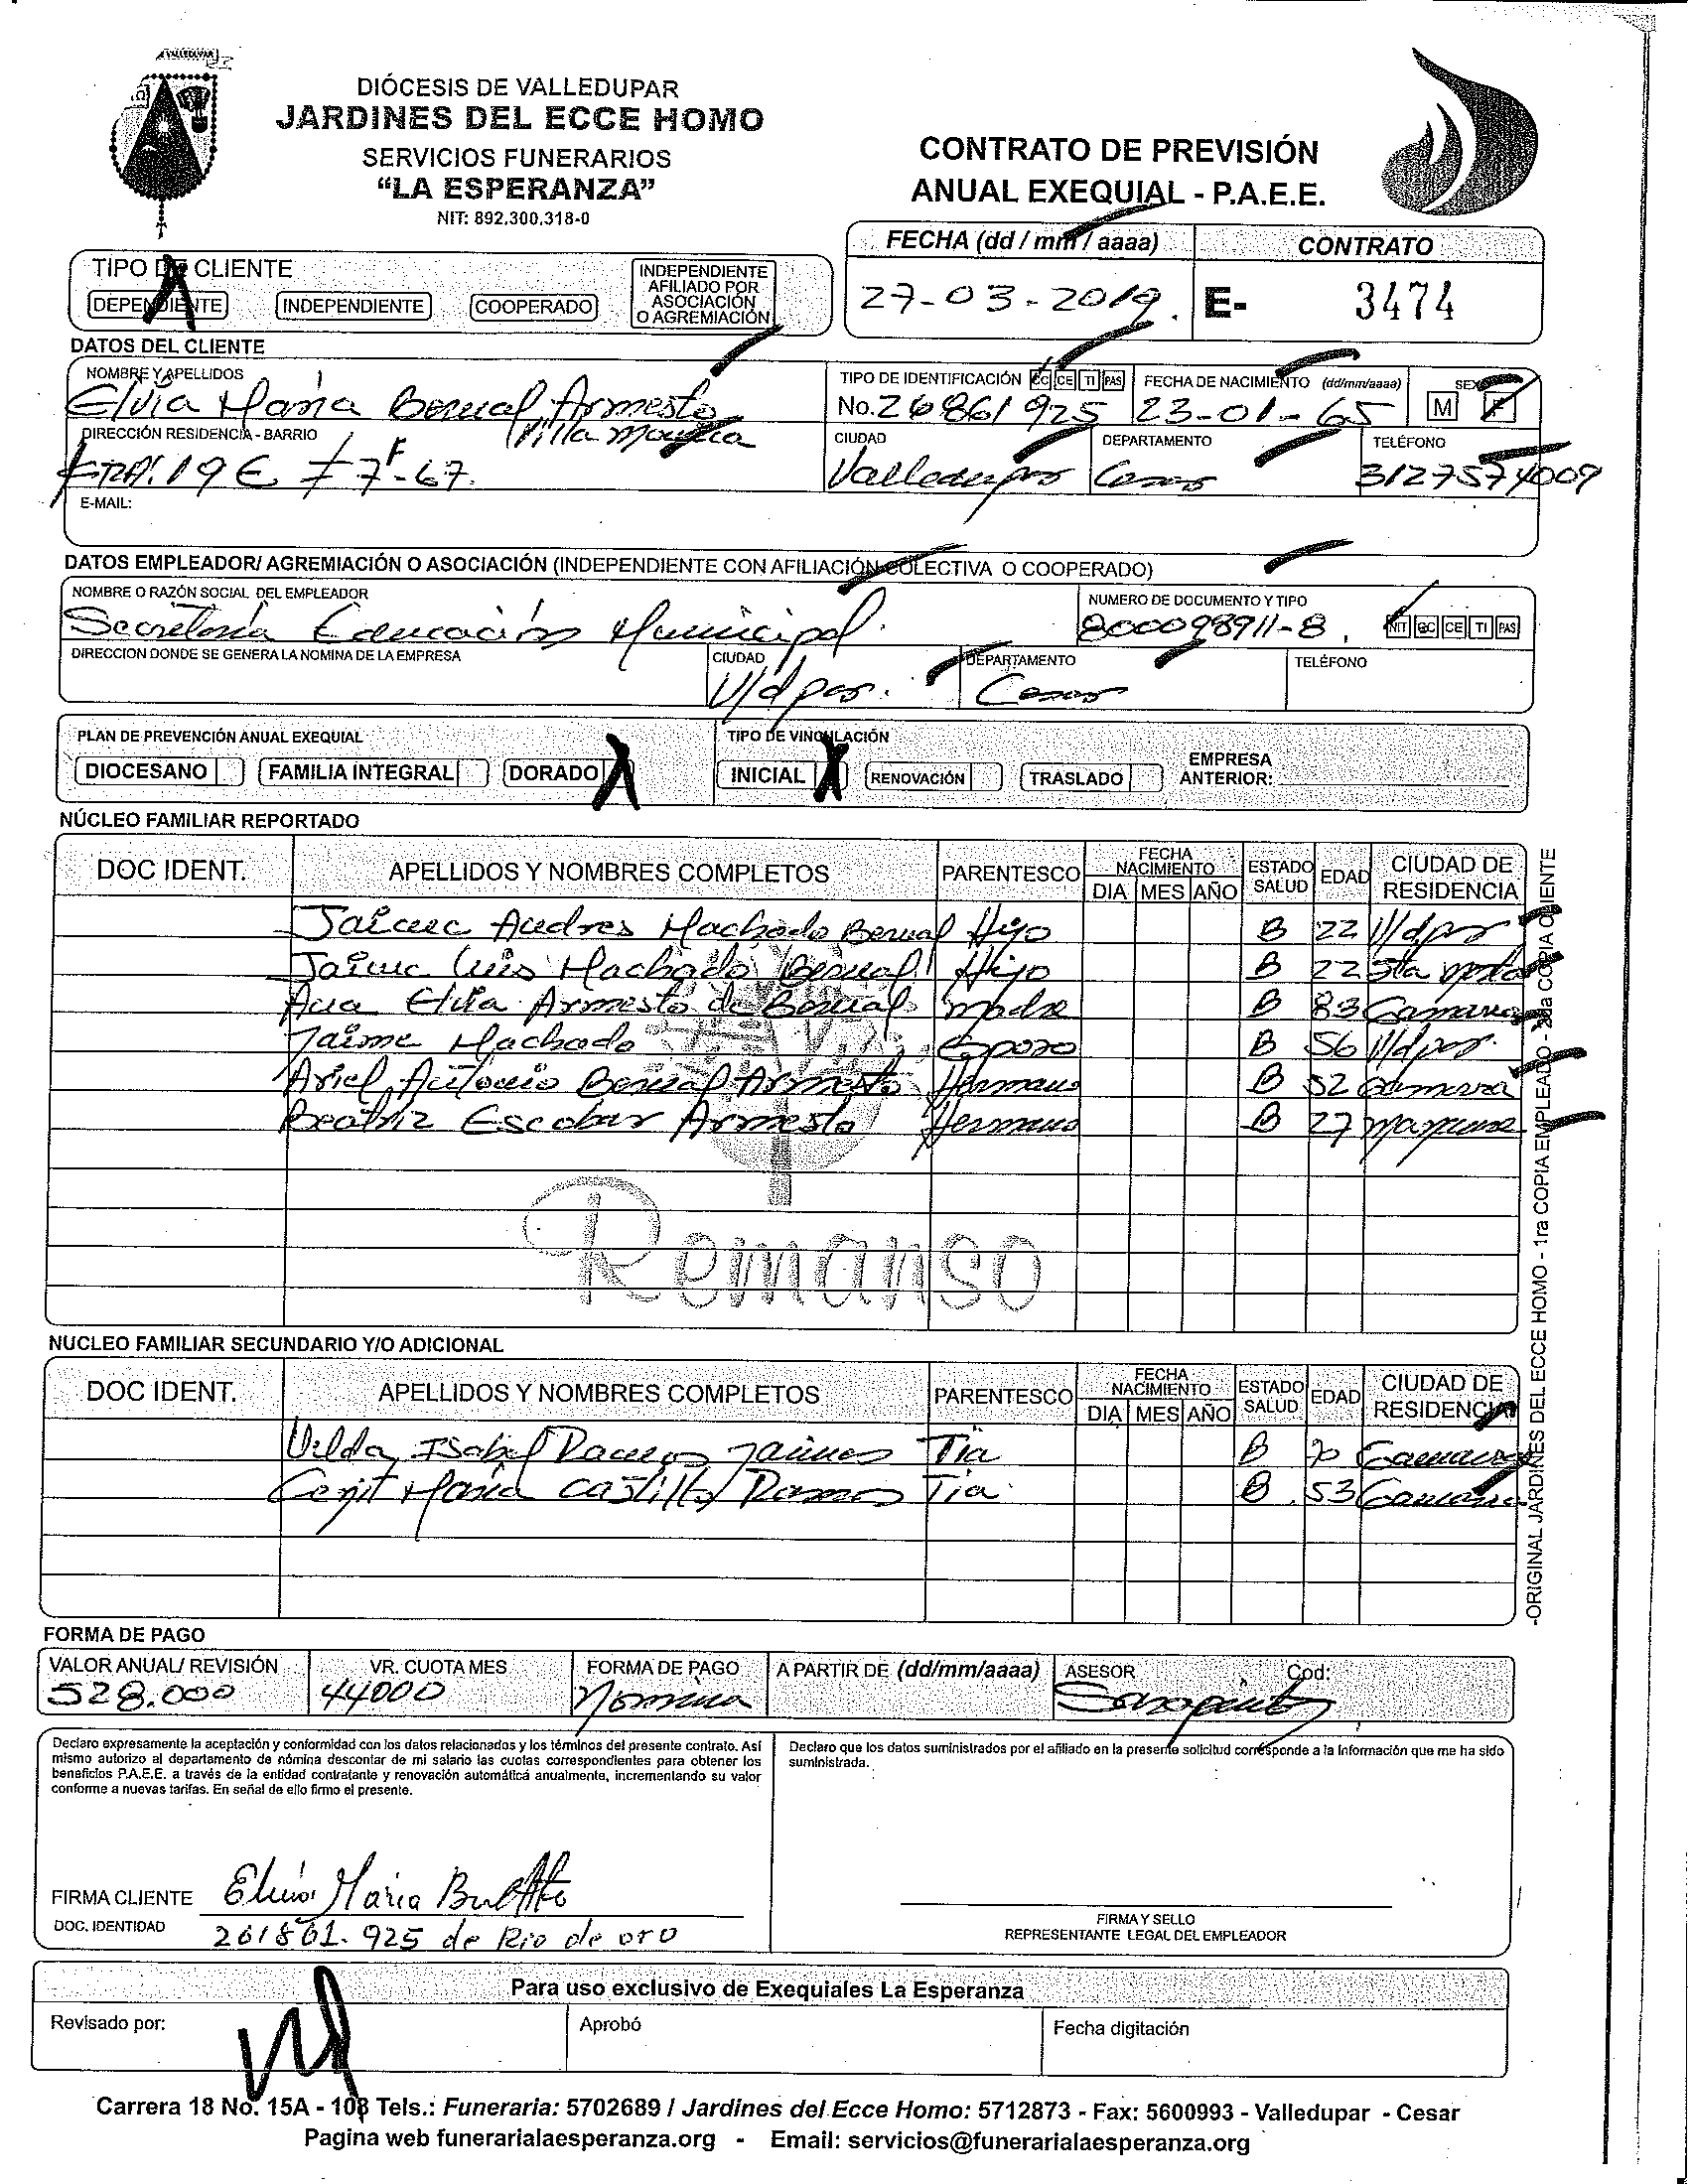 VALLEDUPAR
DIÓCESIS DE VALLEDUPAR
JARDINES DEL ECCE HOMO
SERVICIOS FUNERARIOS
“LA ESPERANZA”
NIT: 892.300.318-0
CONTRATO DE PREVISIÓN
ANUAL EXEQUIAL - P.A.E.E.
FECHA (dd / mm / aaaa) CONTRATO
27-03-2019. E- 3474
TIPO DE CLIENTE
DEPENDIENTE X INDEPENDIENTE COOPERADO INDEPENDIENTE AFILIADO POR ASOCIACIÓN O AGREMIACIÓN
DATOS DEL CLIENTE
NOMBRE Y APELLIDOS TIPO DE IDENTIFICACIÓN CC CE TI PAS FECHA DE NACIMIENTO (dd/mm/aaaa) SEXO
Elvia Maria Bernal Armesto No. 26861925 23-01-65 M F
DIRECCIÓN RESIDENCIA - BARRIO CIUDAD DEPARTAMENTO TELÉFONO
KRA! 19 E # 7F-67. Villa Valledupar Cesar 3127574009
E-MAIL:
DATOS EMPLEADOR/ AGREMIACIÓN O ASOCIACIÓN (INDEPENDIENTE CON AFILIACIÓN COLECTIVA O COOPERADO)
NOMBRE O RAZÓN SOCIAL DEL EMPLEADOR NUMERO DE DOCUMENTO Y TIPO
Secretaria Educación Municipal. 800098911-8. NIT CC CE TI PAS
DIRECCION DONDE SE GENERA LA NOMINA DE LA EMPRESA CIUDAD DEPARTAMENTO TELÉFONO
V/dpar. Cesar
PLAN DE PREVENCIÓN ANUAL EXEQUIAL TIPO DE VINCULACIÓN
DIOCESANO FAMILIA INTEGRAL DORADO X INICIAL X RENOVACIÓN TRASLADO EMPRESA ANTERIOR:
NÚCLEO FAMILIAR REPORTADO
DOC IDENT. APELLIDOS Y NOMBRES COMPLETOS PARENTESCO FECHA NACIMIENTO DIA MES AÑO ESTADO SALUD EDAD CIUDAD DE RESIDENCIA
Jaime Andres Machado Bernal Hijo B 22 V/dpar
Jaime Luis Machado Bernal Hijo B 22 Sta Mta
Ana Elvia Armesto de Bernal madre B 83 Gamarra
Jaime Machado Esposo B 56 V/dpar.
Ariel Antonio Bernal Armesto Hermano B 52 Gamarra
Beatriz Escobar Armesto Hermano B 27
Remanso
NUCLEO FAMILIAR SECUNDARIO Y/O ADICIONAL
DOC IDENT. APELLIDOS Y NOMBRES COMPLETOS PARENTESCO FECHA NACIMIENTO DIA MES AÑO ESTADO SALUD EDAD CIUDAD DE RESIDENCIA
Isabel Tia B 70 Gamarra
Maria Castillo Ramos Tia B 53 Gamarra
-ORIGINAL JARDINES DEL ECCE HOMO - 1ra COPIA EMPLEADO - 2da COPIA CLIENTE
FORMA DE PAGO
VALOR ANUAL/ REVISIÓN VR. CUOTA MES FORMA DE PAGO A PARTIR DE (dd/mm/aaaa) ASESOR Cod:
528.000 44000 Nomina
Declaro expresamente la aceptación y conformidad con los datos relacionados y los términos del presente contrato. Así
mismo autorizo al departamento de nómina descontar de mi salario las cuotas correspondientes para obtener los
beneficios P.A.E.E. a través de la entidad contratante y renovación automática anualmente, incrementando su valor
conforme a nuevas tarifas. En señal de ello firmo el presente.
Declaro que los datos suministrados por el afiliado en la presente solicitud corresponde a la información que me ha sido
suministrada.
FIRMA CLIENTE Elvia Maria
DOC. IDENTIDAD 261861.925 de Rio de oro
FIRMA Y SELLO
REPRESENTANTE LEGAL DEL EMPLEADOR
Para uso exclusivo de Exequiales La Esperanza
Revisado por: Aprobó Fecha digitación
Carrera 18 No. 15A - 108 Tels.: Funeraria: 5702689 / Jardines del Ecce Homo: 5712873 - Fax: 5600993 - Valledupar - Cesar
Pagina web funerarialaesperanza.org - Email: servicios@funerarialaesperanza.org